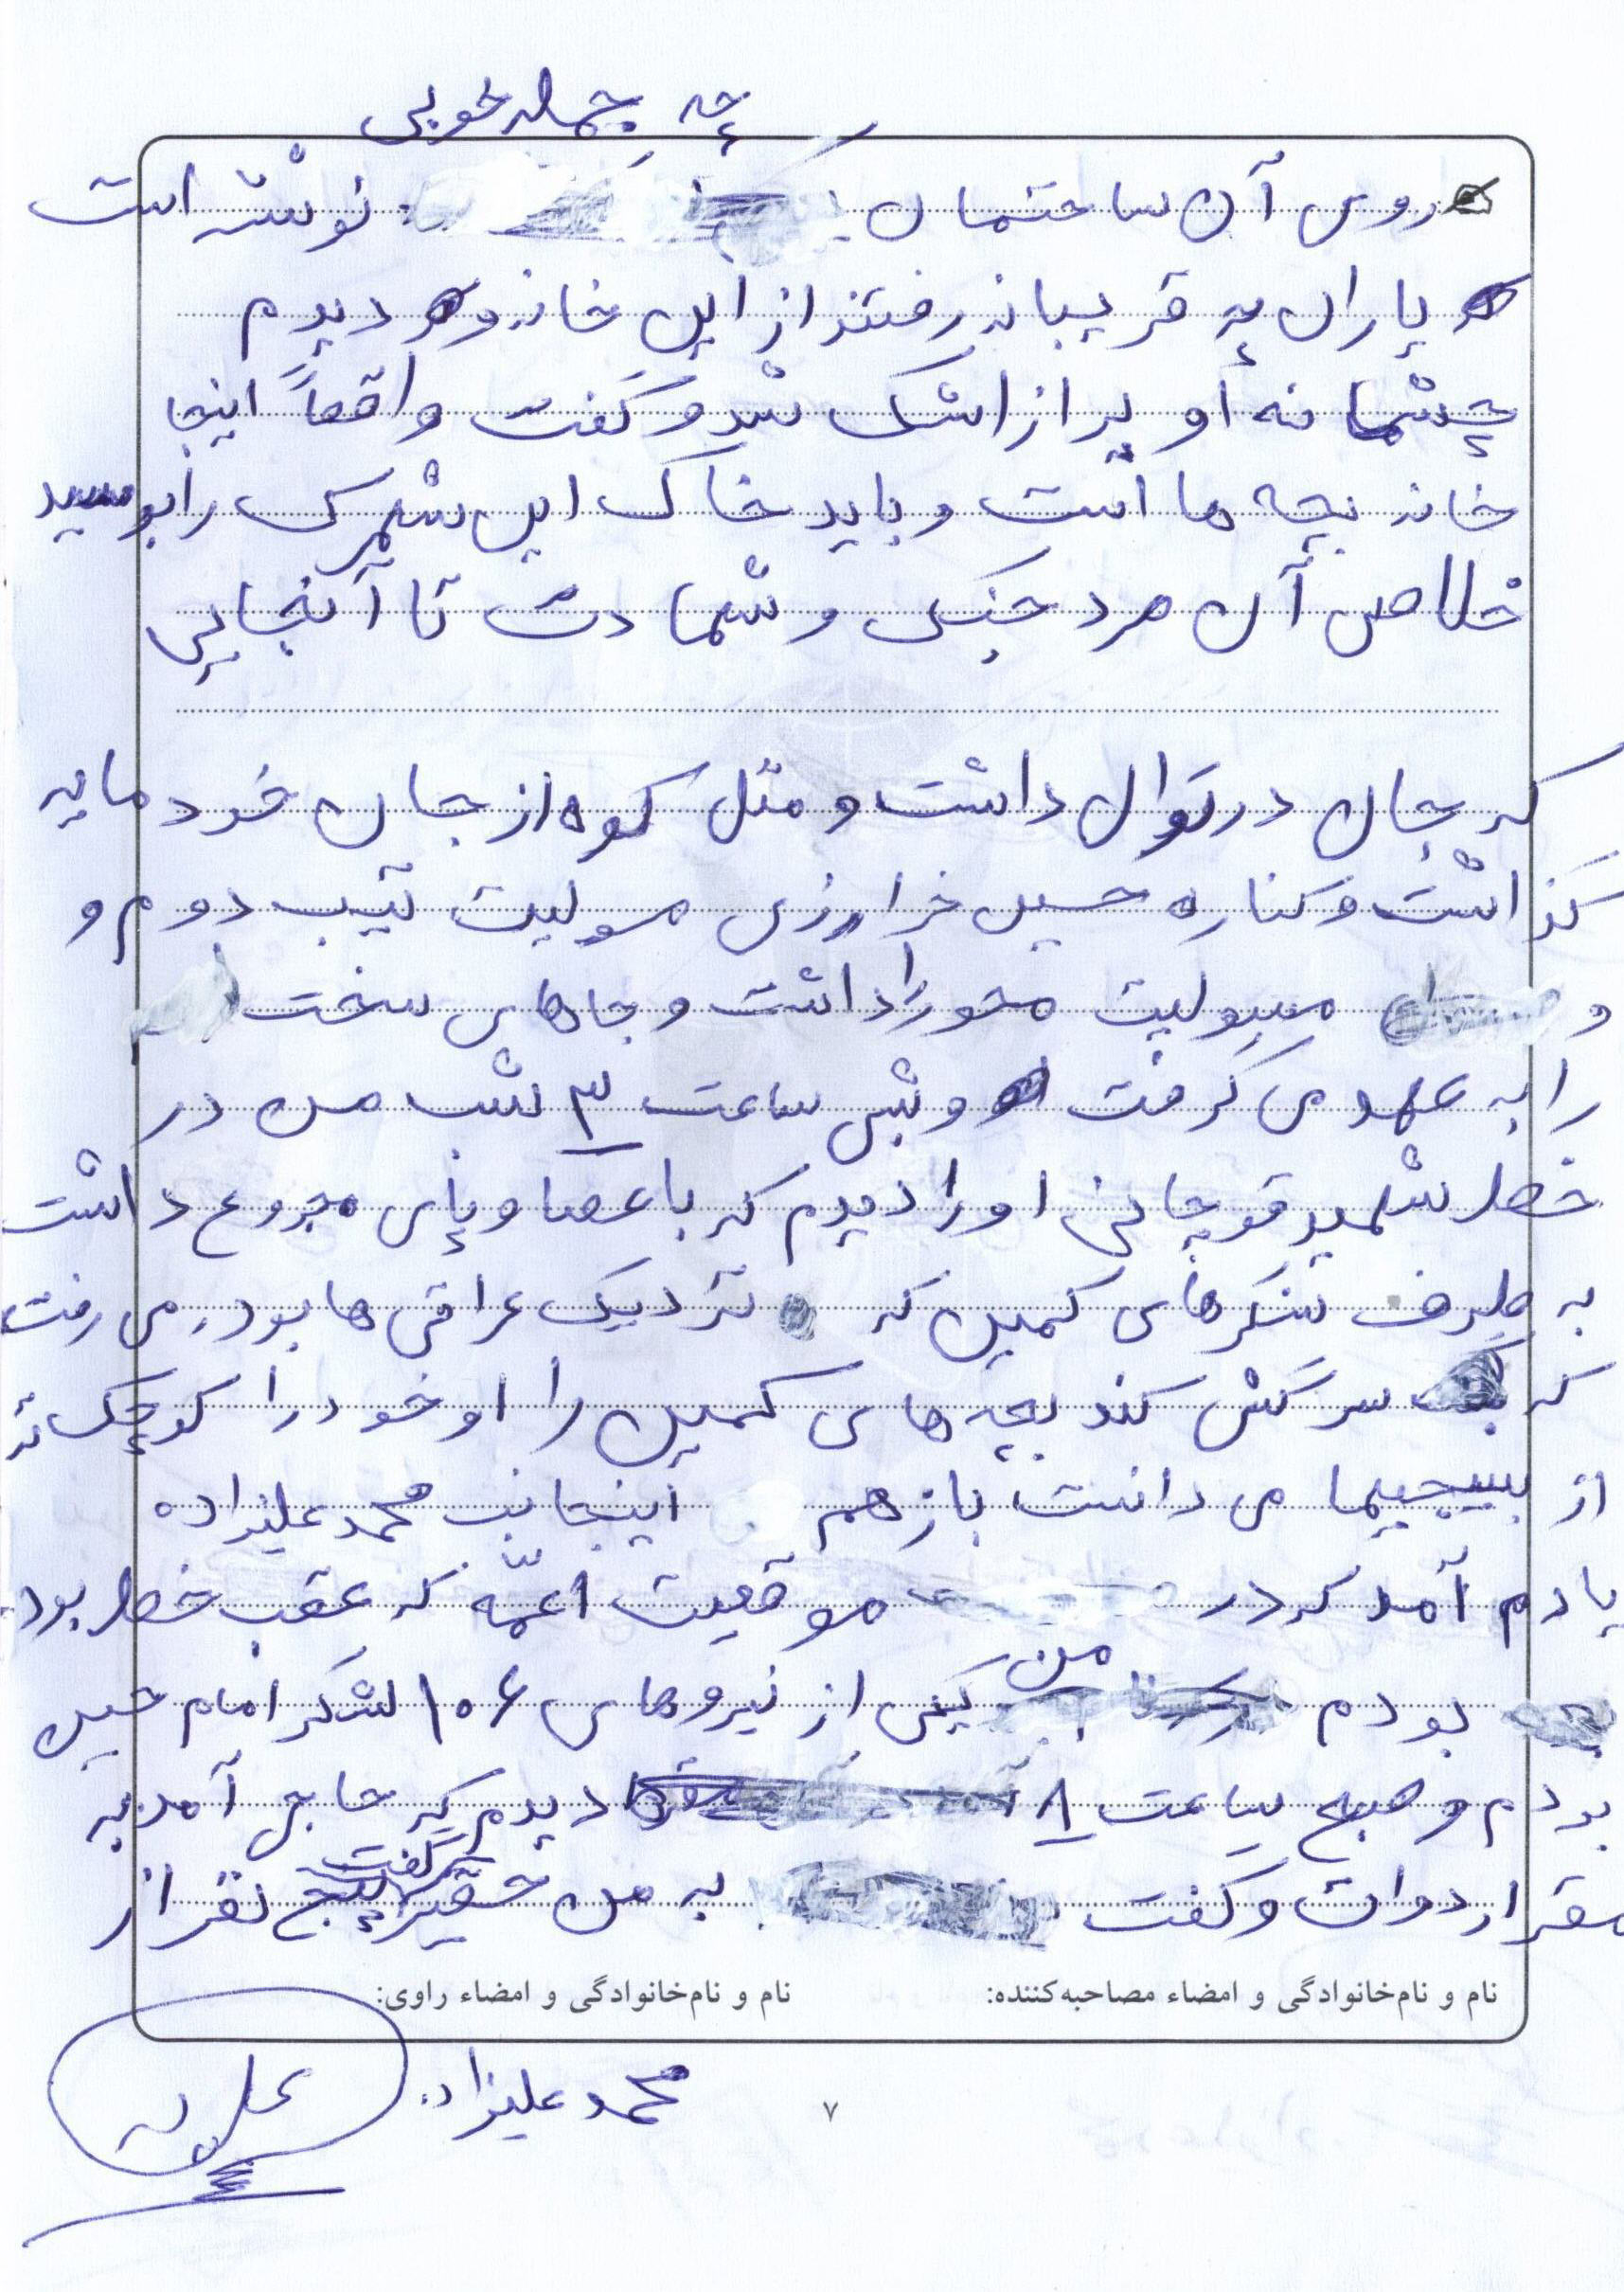 چه جمله خوبی
روی آن ساختمان نوشته است
یاران چه قریبانه رفتند از این خانه و دیدم
چشمانه او پر از اشک شد و گفت واقعاً اینجا
خانه بچه ها است و باید خاک این شهرک را بوسید
خلاصه آن مرد جنگ و شهادت تا آنجایی
که جان در توان داشت و مثل کوه از جان خود مایه
گذاشت و کناره حسین خرازی مسولیت تیپ دوم و
و مسولیت محور را داشت و جاهای سخت
را به عهد می گرفت و شبی ساعت ۳ شب من در
خط شهید قوچانی او را دیدم که با عصا و پای مجروع داشت
به طرف سنگرهای کمین که نزدیک عراقی ها بود. می رفت
که سرکشی کند بچه های کمین را او خود را کوچک تر
از بسیجیها می دانست بازهم اینجانب محمد علیزاده
یادم آمد که در موقعیت اعمّه که عقب خط بود.
بودم من یکی از نیروهای ۱۰۶ لشکر امام حسین
بودم و صبح ساعت ۸ دیدم که حاجی آمد به
مقر ادوات و گفت به من حقیر گفت پنج نفر از
نام و نام‌خانوادگی و امضاء مصاحبه‌کننده: نام و نام‌خانوادگی و امضاء راوی:
محمد علیزاده
۷